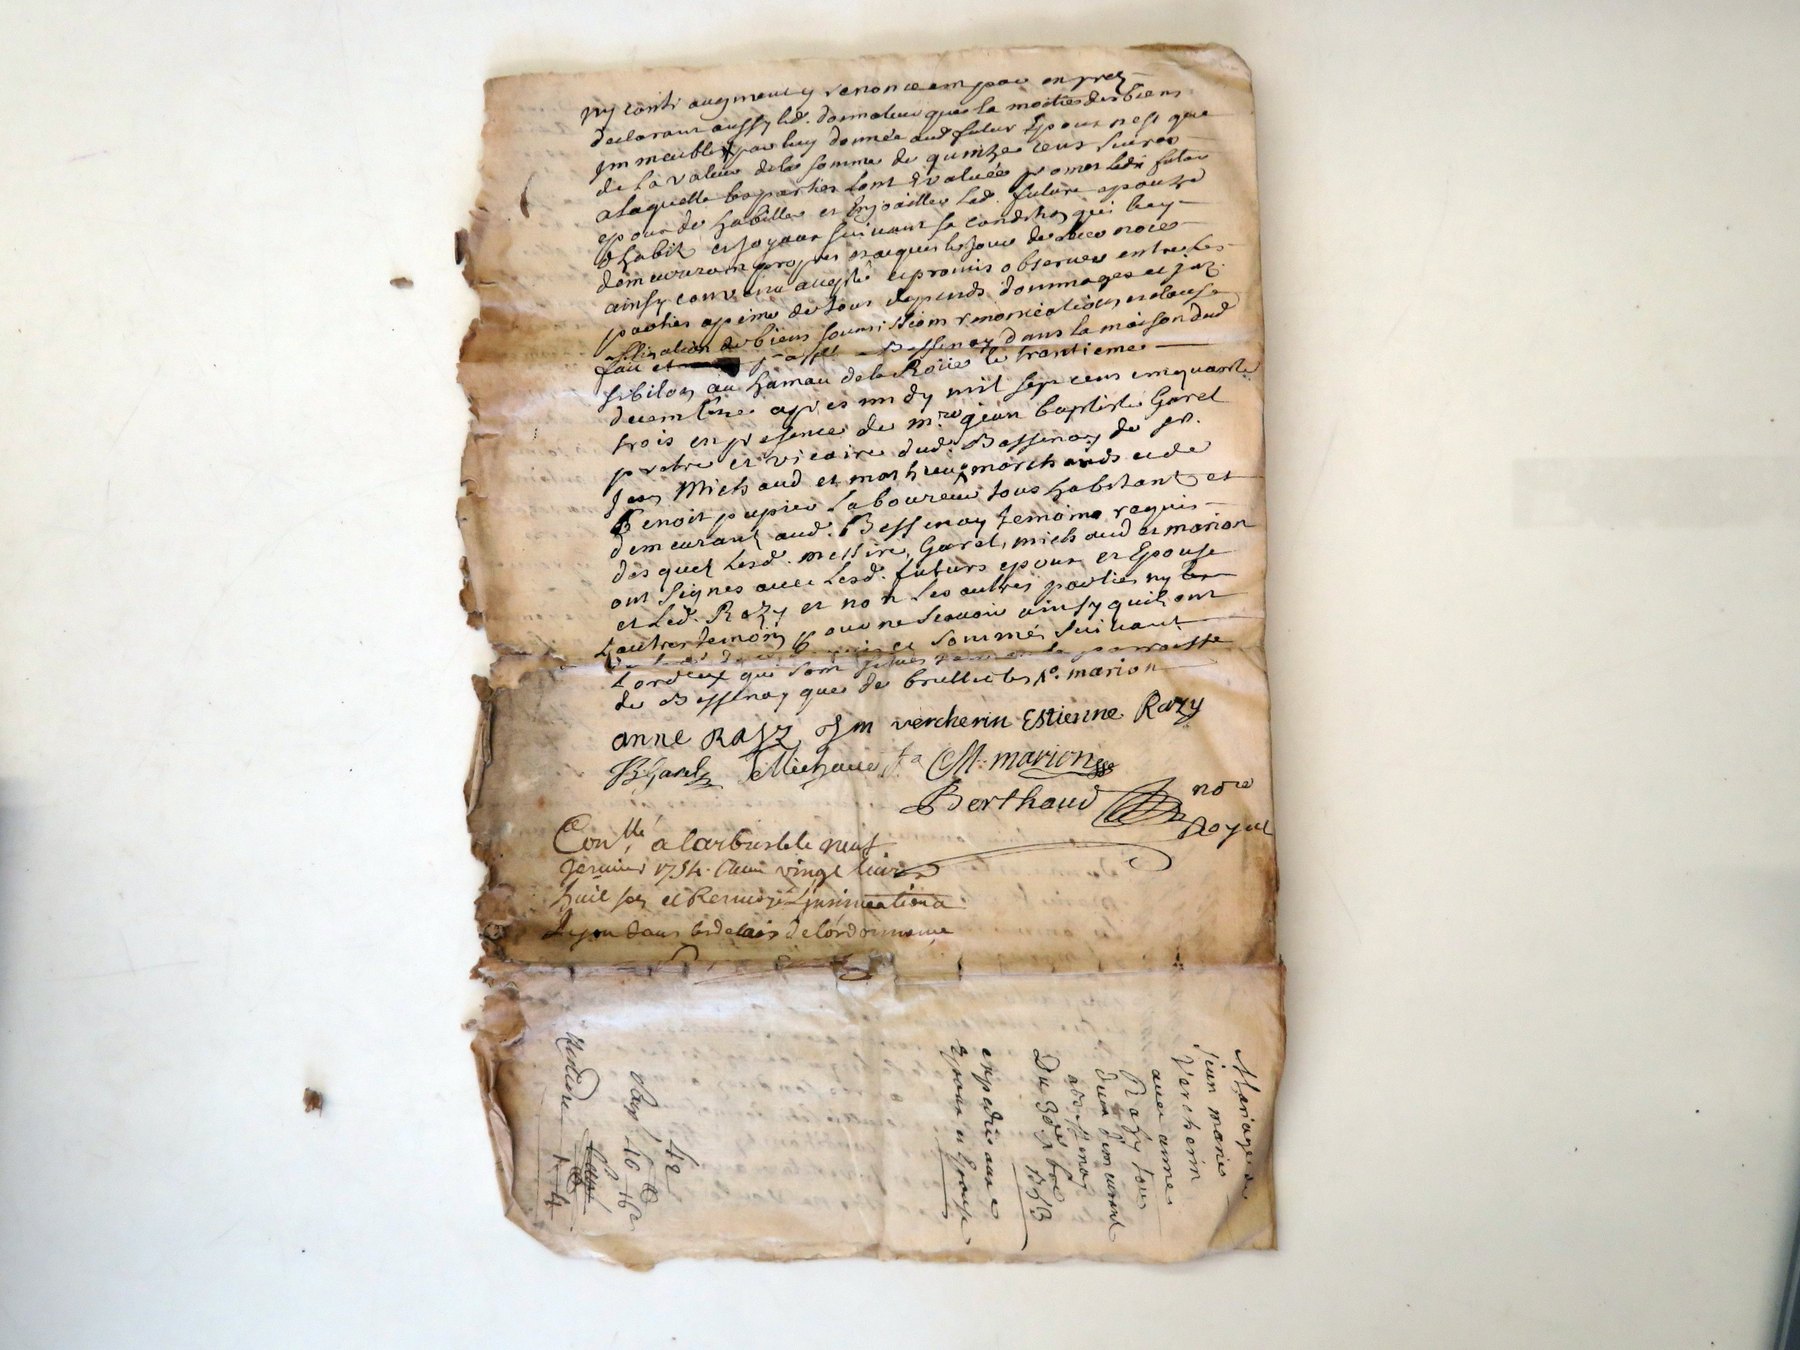 ny conti augment y renoncent par exprez
declarant aussy led. donnateur que la moitiés des biens
immeubles par luy donnée aud futur Epoux n'est que
de la valeur de la somme de quinze cens livres
a laquelle les parties l'ont Evaluée promet ledit futur
epoux de habiller et Enjoailler lad. future epouze
d'habit et joyaux suivant sa condition qui luy
demeureront propres
ainsy convenu accepté et promis observer entre les
parties a peine de tous depends dommages et
biens soumissions renonciations et clause
fait et passé a Bessenay dans la maison dud
sibilon au hameau de la Roüe le trantieme
decembre apres midy mil sept cens cinquante
trois en presence de mre jean baptiste Garel
pretre et vicaire dud. Bessenay de sr.
Jean Michaud et mathieu marchands et de
Benoit pupier laboureur tous habitant et
demeurant aud. Bessenay temoins requis
desquel lesd. messire, Garel, michaud et marion
ont signes avec lesd. futurs epoux et Epouse
et led. Razy et non les autres parties ny les
autres temoins pour ne scavoir ainsy quil ont
et sommés suivant
l'ordre que sont
de Bessenay que de brullioles marion
anne Razy Jm vercherin Estienne Razy
JB Garel Michaud M. marion
Berthaud nore
Royal
Conllé a larbresle le neuf
Janvier 1754. vingt livres
huit sols et Renvoyé a l'insinuation a
Lyon dans les delais de l'ordonnance
Mariage de
jean marie
Vercherin
avec anne
Razy tous
deux demeurant
a bessenay
Du 30e Xbre 1753
expedié aux
Epoux et Epouse
42